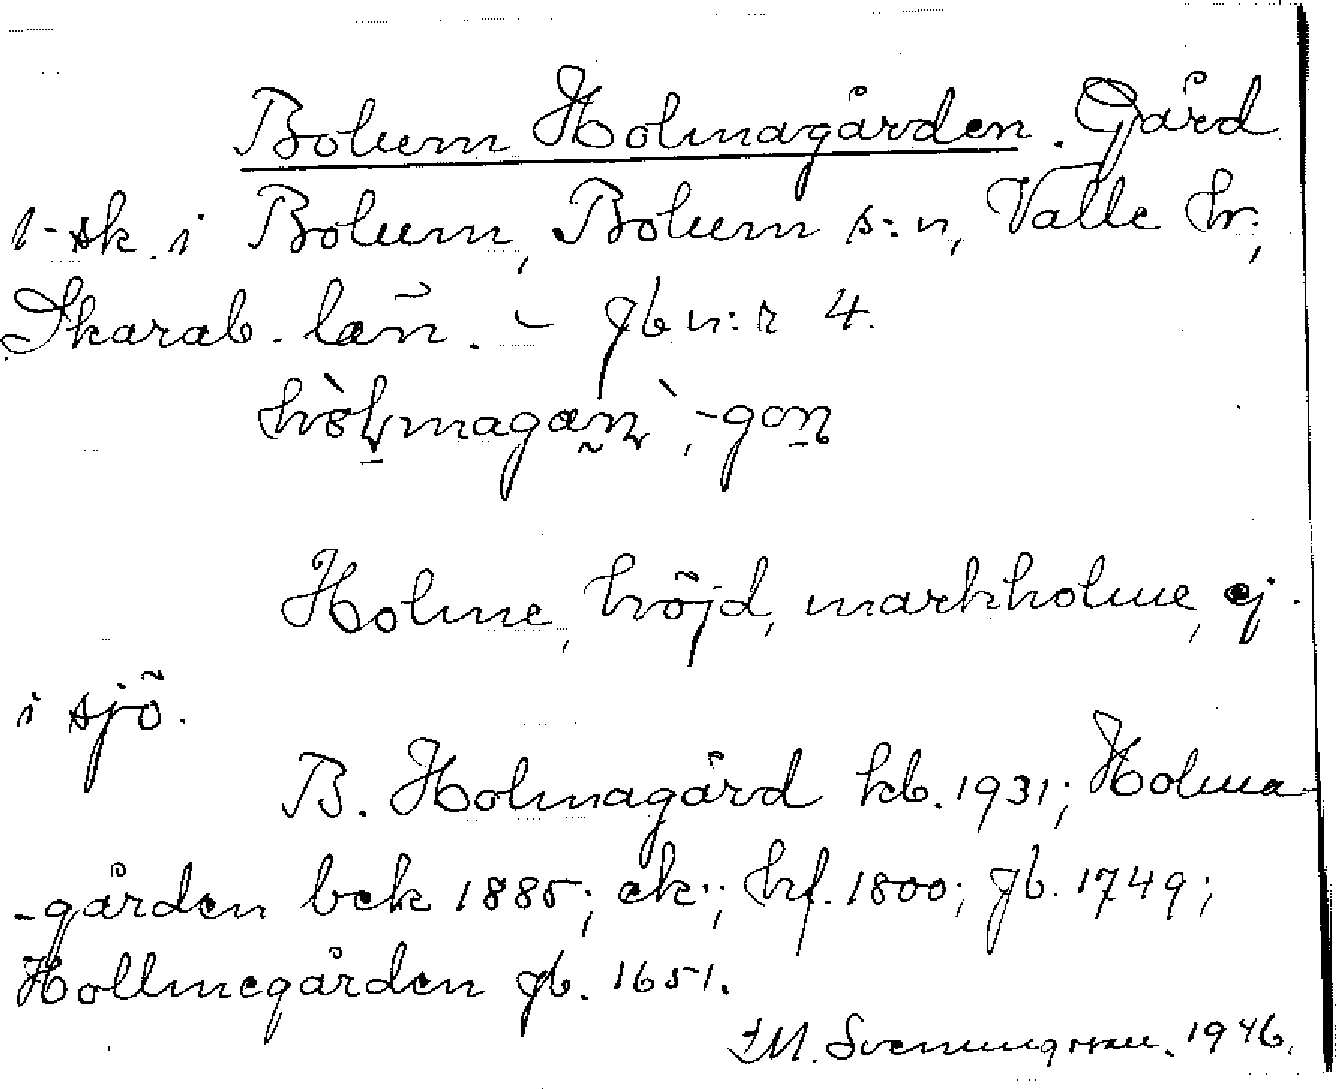 Bolum Holmagården. Gård
1-sk. i Bolum, Bolum s:n, Valle hr;
Skarab. län. – gb n:r 4.
hòḷmagaṉ`, -goṉ
Holme, höjd, markholme, ej
i sjö.
B. Holmagård kb. 1931; Holma-
-gården bek 1885; ek.; hf. 1800; jb. 1749;
Hollmegården jb. 1651.
M. Svenungsson. 1946.